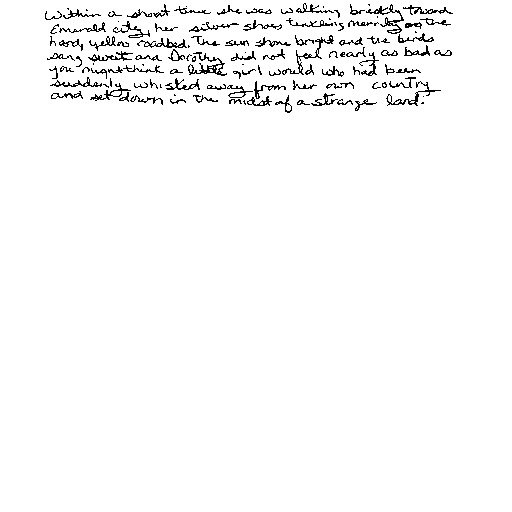 Within a short time she was walking briskly toward
Emerald city, her silver shoes tinkling merrily on the
hard, yellow roadbed. The sun shone bright and the birds
sang sweet and Dorothy did not feel nearly as bad as
you might think a little girl would who had been
suddenly whisted away from her own country
and set down in the midst of a strange land.